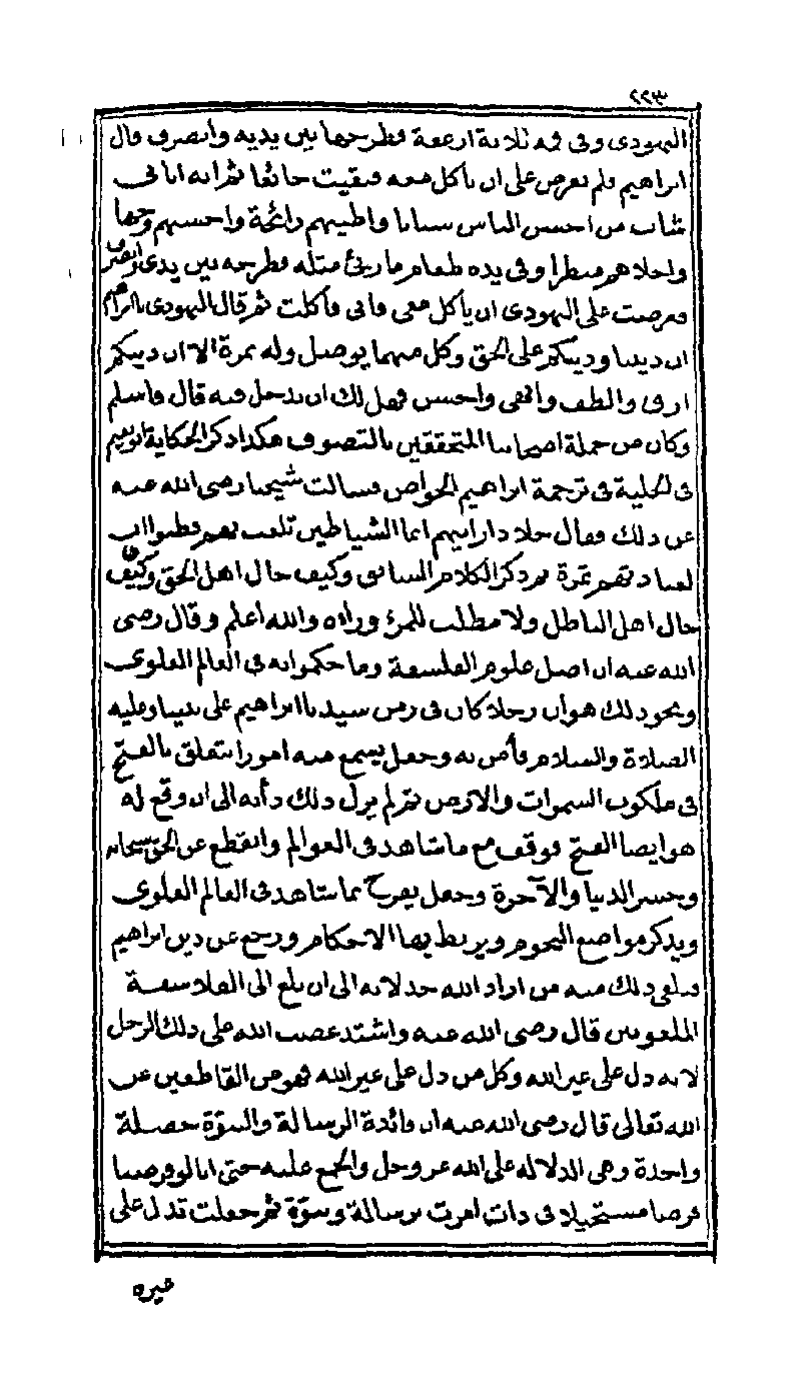 ٢٢٣
اليهودى وفى فمه ثلاثة ارغفة فطرحها بين يديه وانصرف قال
ابراهيم ولم يعرض على ان ناكل معه فبقيت جائعا ثم انه اتانى
شاب من احسن الناس شبابا واطيبهم رائحة واحسنهم وجها
واحلاهم منظرا وفى يده طعام ما رىئ مثله فطرحه بين يدى وانصرف
فعرضت على اليهودى ان يأكل معى فابى فأكلت ثم قال اليهودى يا ابراهيم
ان ديننا ودينكم على الحق وكل منهما يوصل وله ثمرة الا ان دينكم
ارق والطف وابهى واحسن فهل لك ان ندخل فيه قال فاسلم
وكان من جملة اصحابنا المتحققين بالتصوف هكذا ذكر الحكاية ابو نعيم
فى الحلية فى ترجمة ابراهيم الخواص فسالت شيخنا رضى الله عنه
عن ذلك فقال الشياطين تلعب بهم فظنوا ان
لعبادتهم ثمرة ثم ذكر الكلام السابق وكيف حال اهل الحق وكيف
حال اهل الباطل ولا مطلب للمرء وراءه والله اعلم وقال رضى
الله عنه ان اصل علوم الفلسفة وما حكموا به فى العالم العلوى
ونحو ذلك هو ان رجلا كان فى زمن سيدنا ابراهيم على نبينا وعليه
الصلاة والسلام فأمن به وجعل يسمع منه امورا تتعلق بالفتح
فى ملكوت السموات والارض ثم لم يزل ذلك دأبه الى ان وقع له
هو ايضا الفتح فوقف مع ما شاهد فى العوالم وانقطع عن الحق سبحانه
وخسر الدنيا والآخرة وجعل يفرح بما شاهد فى العالم العلوى
ويذكر مواضع النجوم ويربط بها الاحكام ورجع عن دين ابراهيم
فتلقى ذلك منه من اراد الله خذلانه الى ان بلغ الى الفلاسفة
الملعونين قال رضى الله عنه واشتد غضب الله على ذلك الرجل
لانه دل على غير الله وكل من دل على غير الله فهو من القاطعين عن
الله تعالى قال رضى الله عنه ان فائدة الرسالة والنبوة خصلة
واحدة وهى الدلالة على الله عز وجل والجمع عليه حتى انا لو فرضنا
فرضا مستحيلا فى ذات امرت برسالة ونبوة ثم جعلت تدل على
غيره